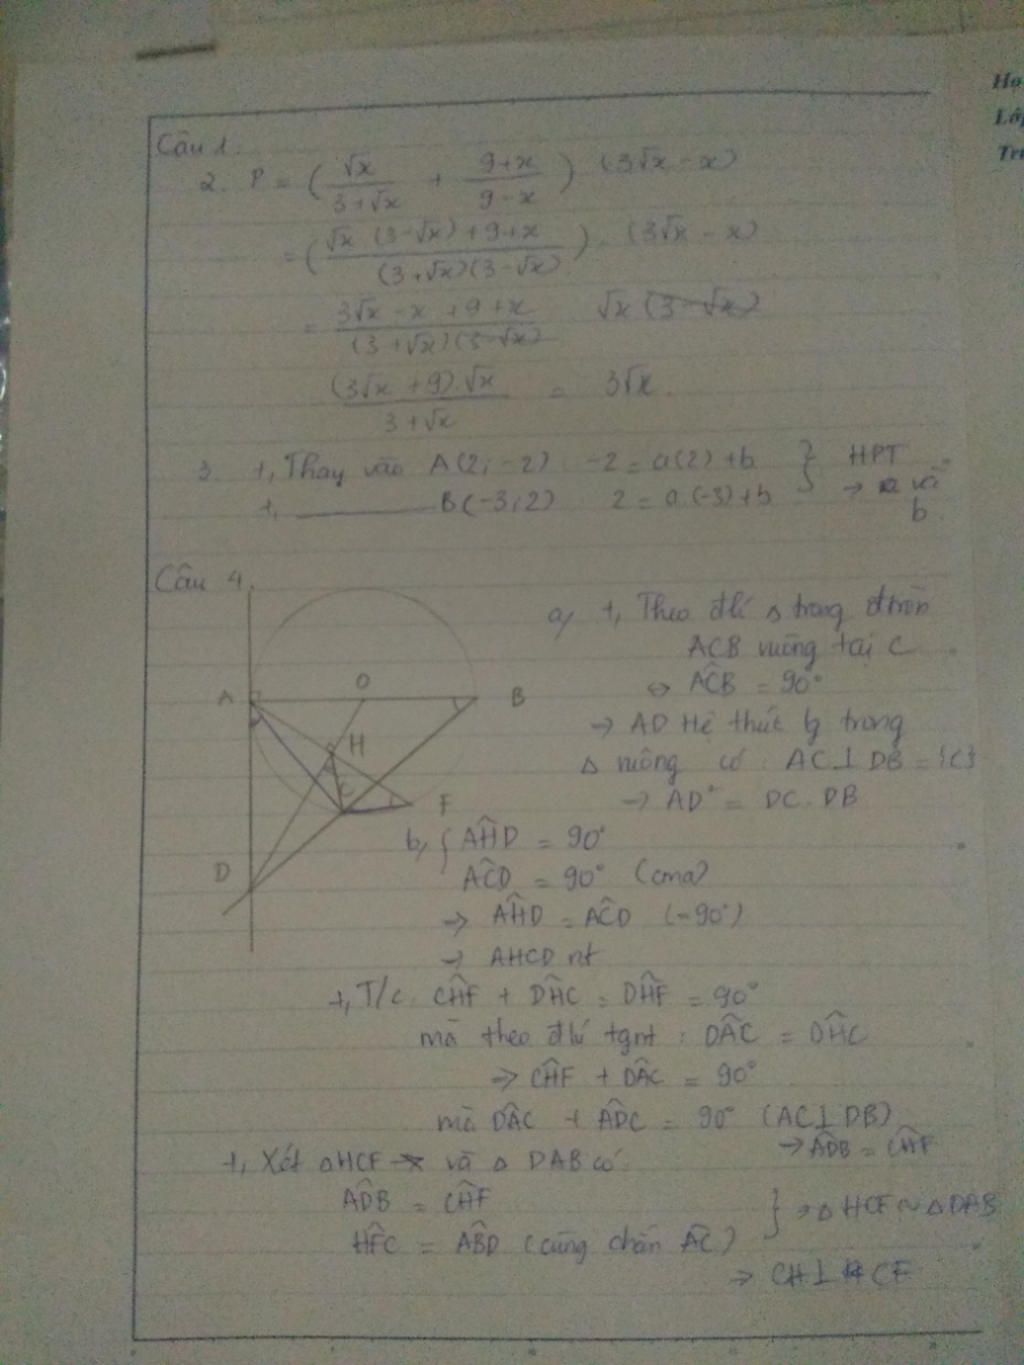 Họ
Lớp
Trư
Câu 1.
2. P = (√x / (3+√x) + (9+x) / (9-x)) (3√x - x)
= ((√x (3-√x) + 9+x) / ((3+√x)(3-√x))) . (3√x - x)
= (3√x - x + 9 + x) / ((3+√x)(3-√x)) √x (3-√x)
((3√x + 9).√x) / (3+√x) = 3√x.
3. +, Thay vào A(2;-2) : -2 = a(2)+b } HPT
+, ———— B(-3;2) 2 = a.(-3)+b → a và
b.
Câu 4.
A O B H C F D
a, +, Theo đlí Δ trong đtròn
ACB vuông tại C
⇔ ACB̂ = 90°
→ AD Hệ thức lg trong
Δ vuông có : AC⊥DB = {C}
→ AD² = DC.DB
b, { AĤD = 90°
AĈD = 90° (cma)
→ AĤD = AĈD (=90°)
→ AHCD nt
+, T/c. CĤF + DĤC = DĤF = 90°
mà theo đlí tgnt : DÂC = DĤC
→ CĤF + DÂC = 90°
mà DÂC + AD̂C = 90° (AC⊥DB)
→ AD̂B = CĤF
+, Xét ΔHCF và Δ DAB có:
AD̂B = CĤF } → Δ HCF ~ Δ DAB
HF̂C = AB̂D (cùng chắn AC)
→ CH⊥CF